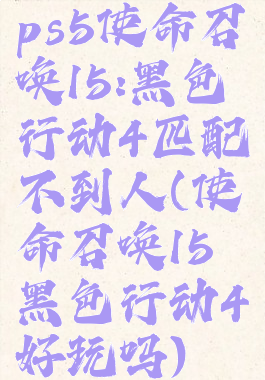 ps5使命召
唤15:黑色
行动4匹配
不到人(使
命召唤15
黑色行动4
好玩吗)